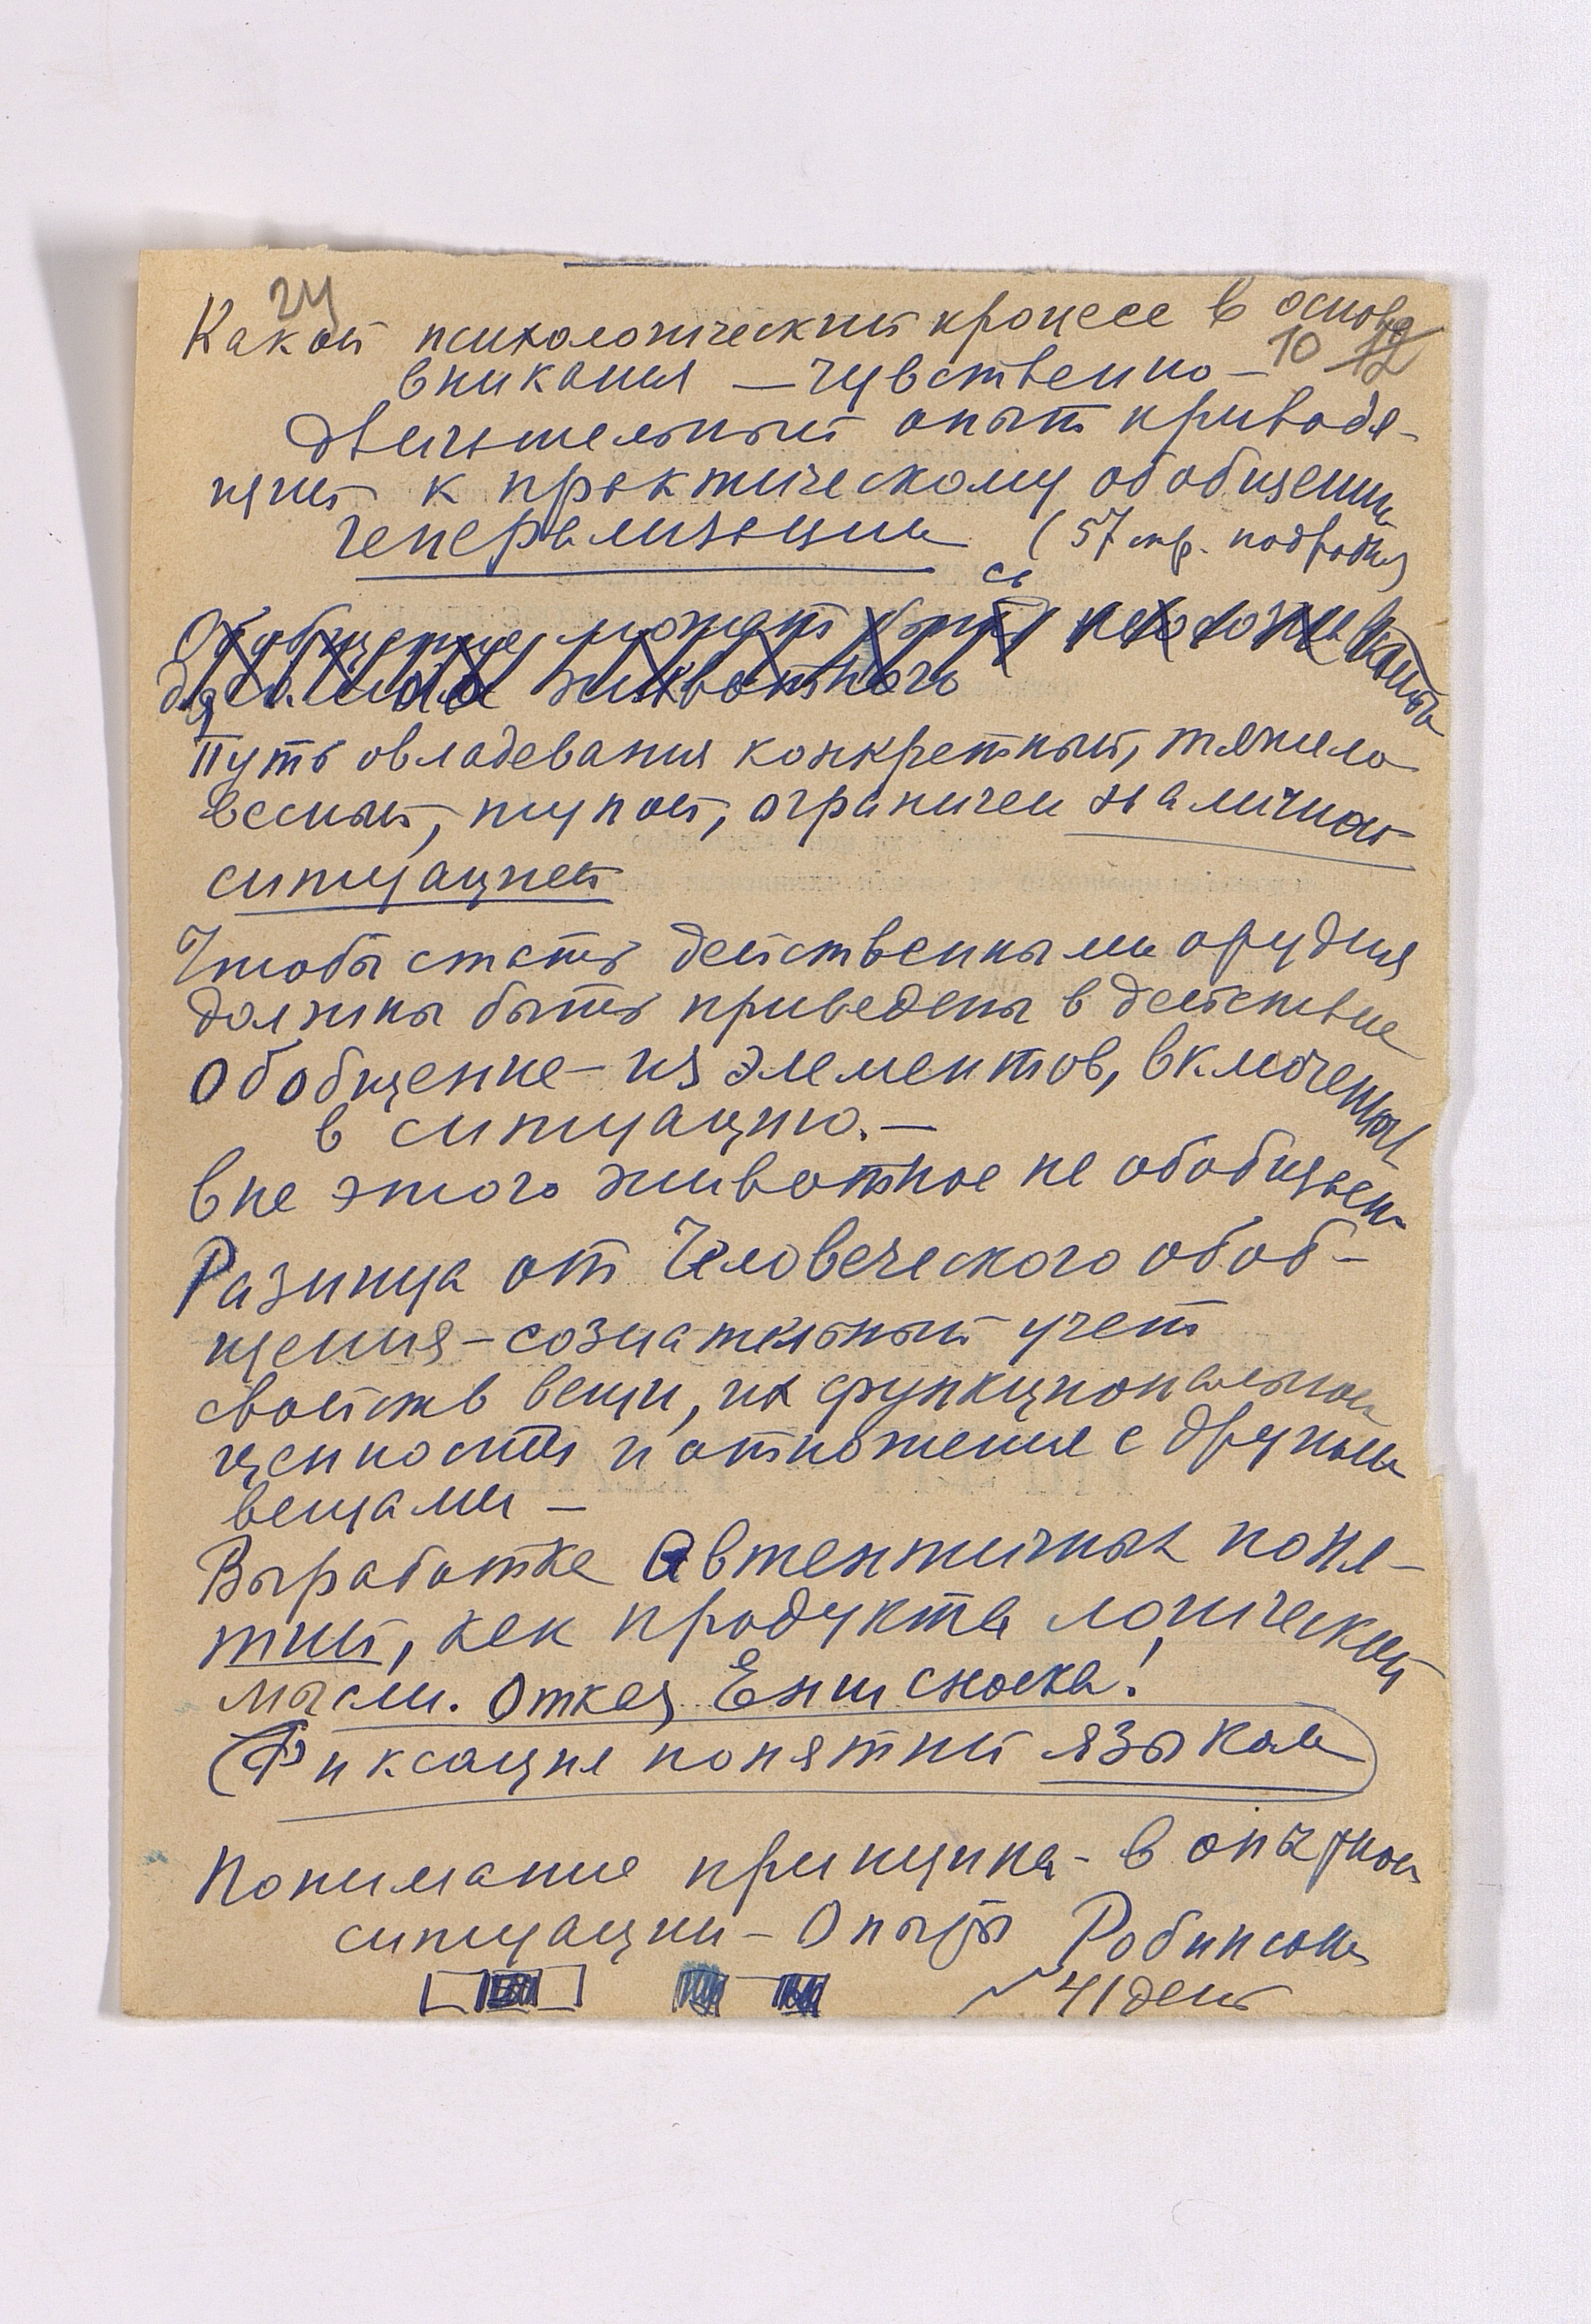 24
Какой психологический процесс в основе
10 12
вникания — чувственно-
двигательный опыт приводя-
щий к практическому обобщению
генерализации (57 стр. подробн)
Обобщение может быть
для животного
Путь овладевания конкретный, тяжело
весный, тупой, ограничен наличной
ситуацией
Чтобы стать действенными орудия
должны быть приведены в действие
Обобщение – из элементов, включенных
в ситуацию. —
Вне этого животное не обобщает
Разница от Человеческого обоб-
щения – сознательный учет
свойств вещи, их функциональной
ценности и отношения с другими
вещами —
Выработке Автентичных поня-
тий, как продукта логической
мысли. Отказ Ениш сноска!
(Фиксация понятий языком)
Понимание принципа - в опытной
ситуации – Опыты Робинсона
41 день